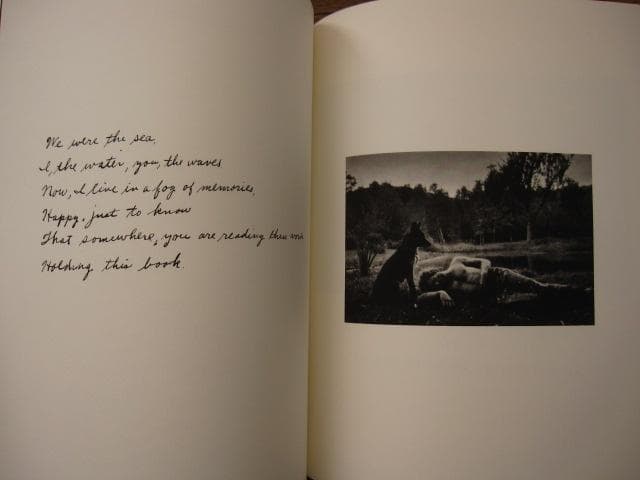 We were the sea.
I, the water, you, the waves
Now, I live in a fog of memories,
Happy, just to know
That somewhere, you are reading these
Holding this book.